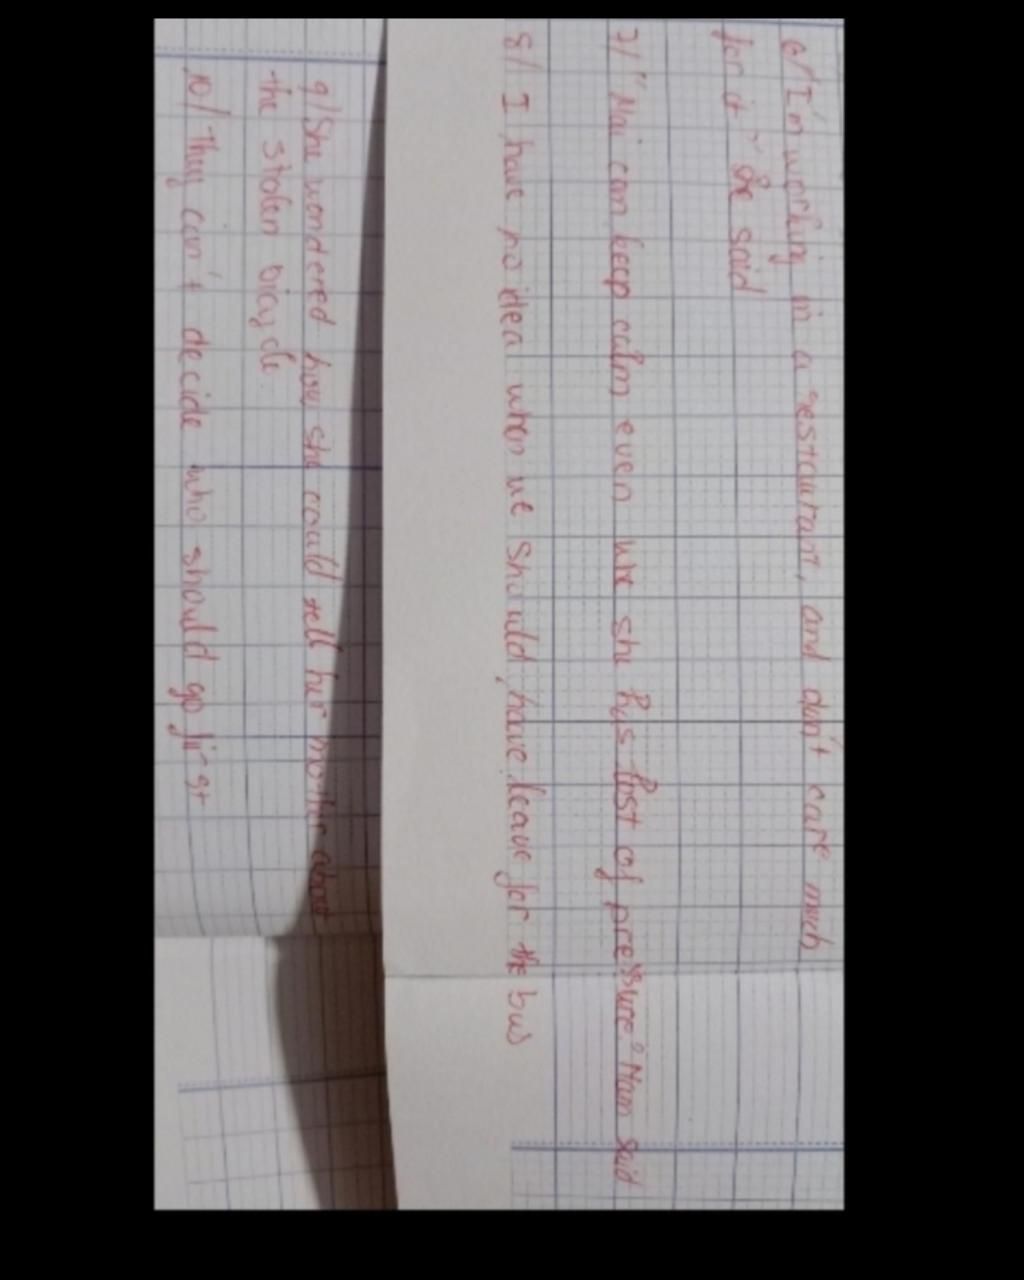 6/ I'm working in a restaurant, and don't care much
for it" she said
7/ "Mai can keep calm even whe she has lost of pressure." Nam said
8/ I have no idea when we should have leave for the bus
9/ She wondered how she could tell her mother about
the stolen bicycle.
10/ They can't decide who should go first